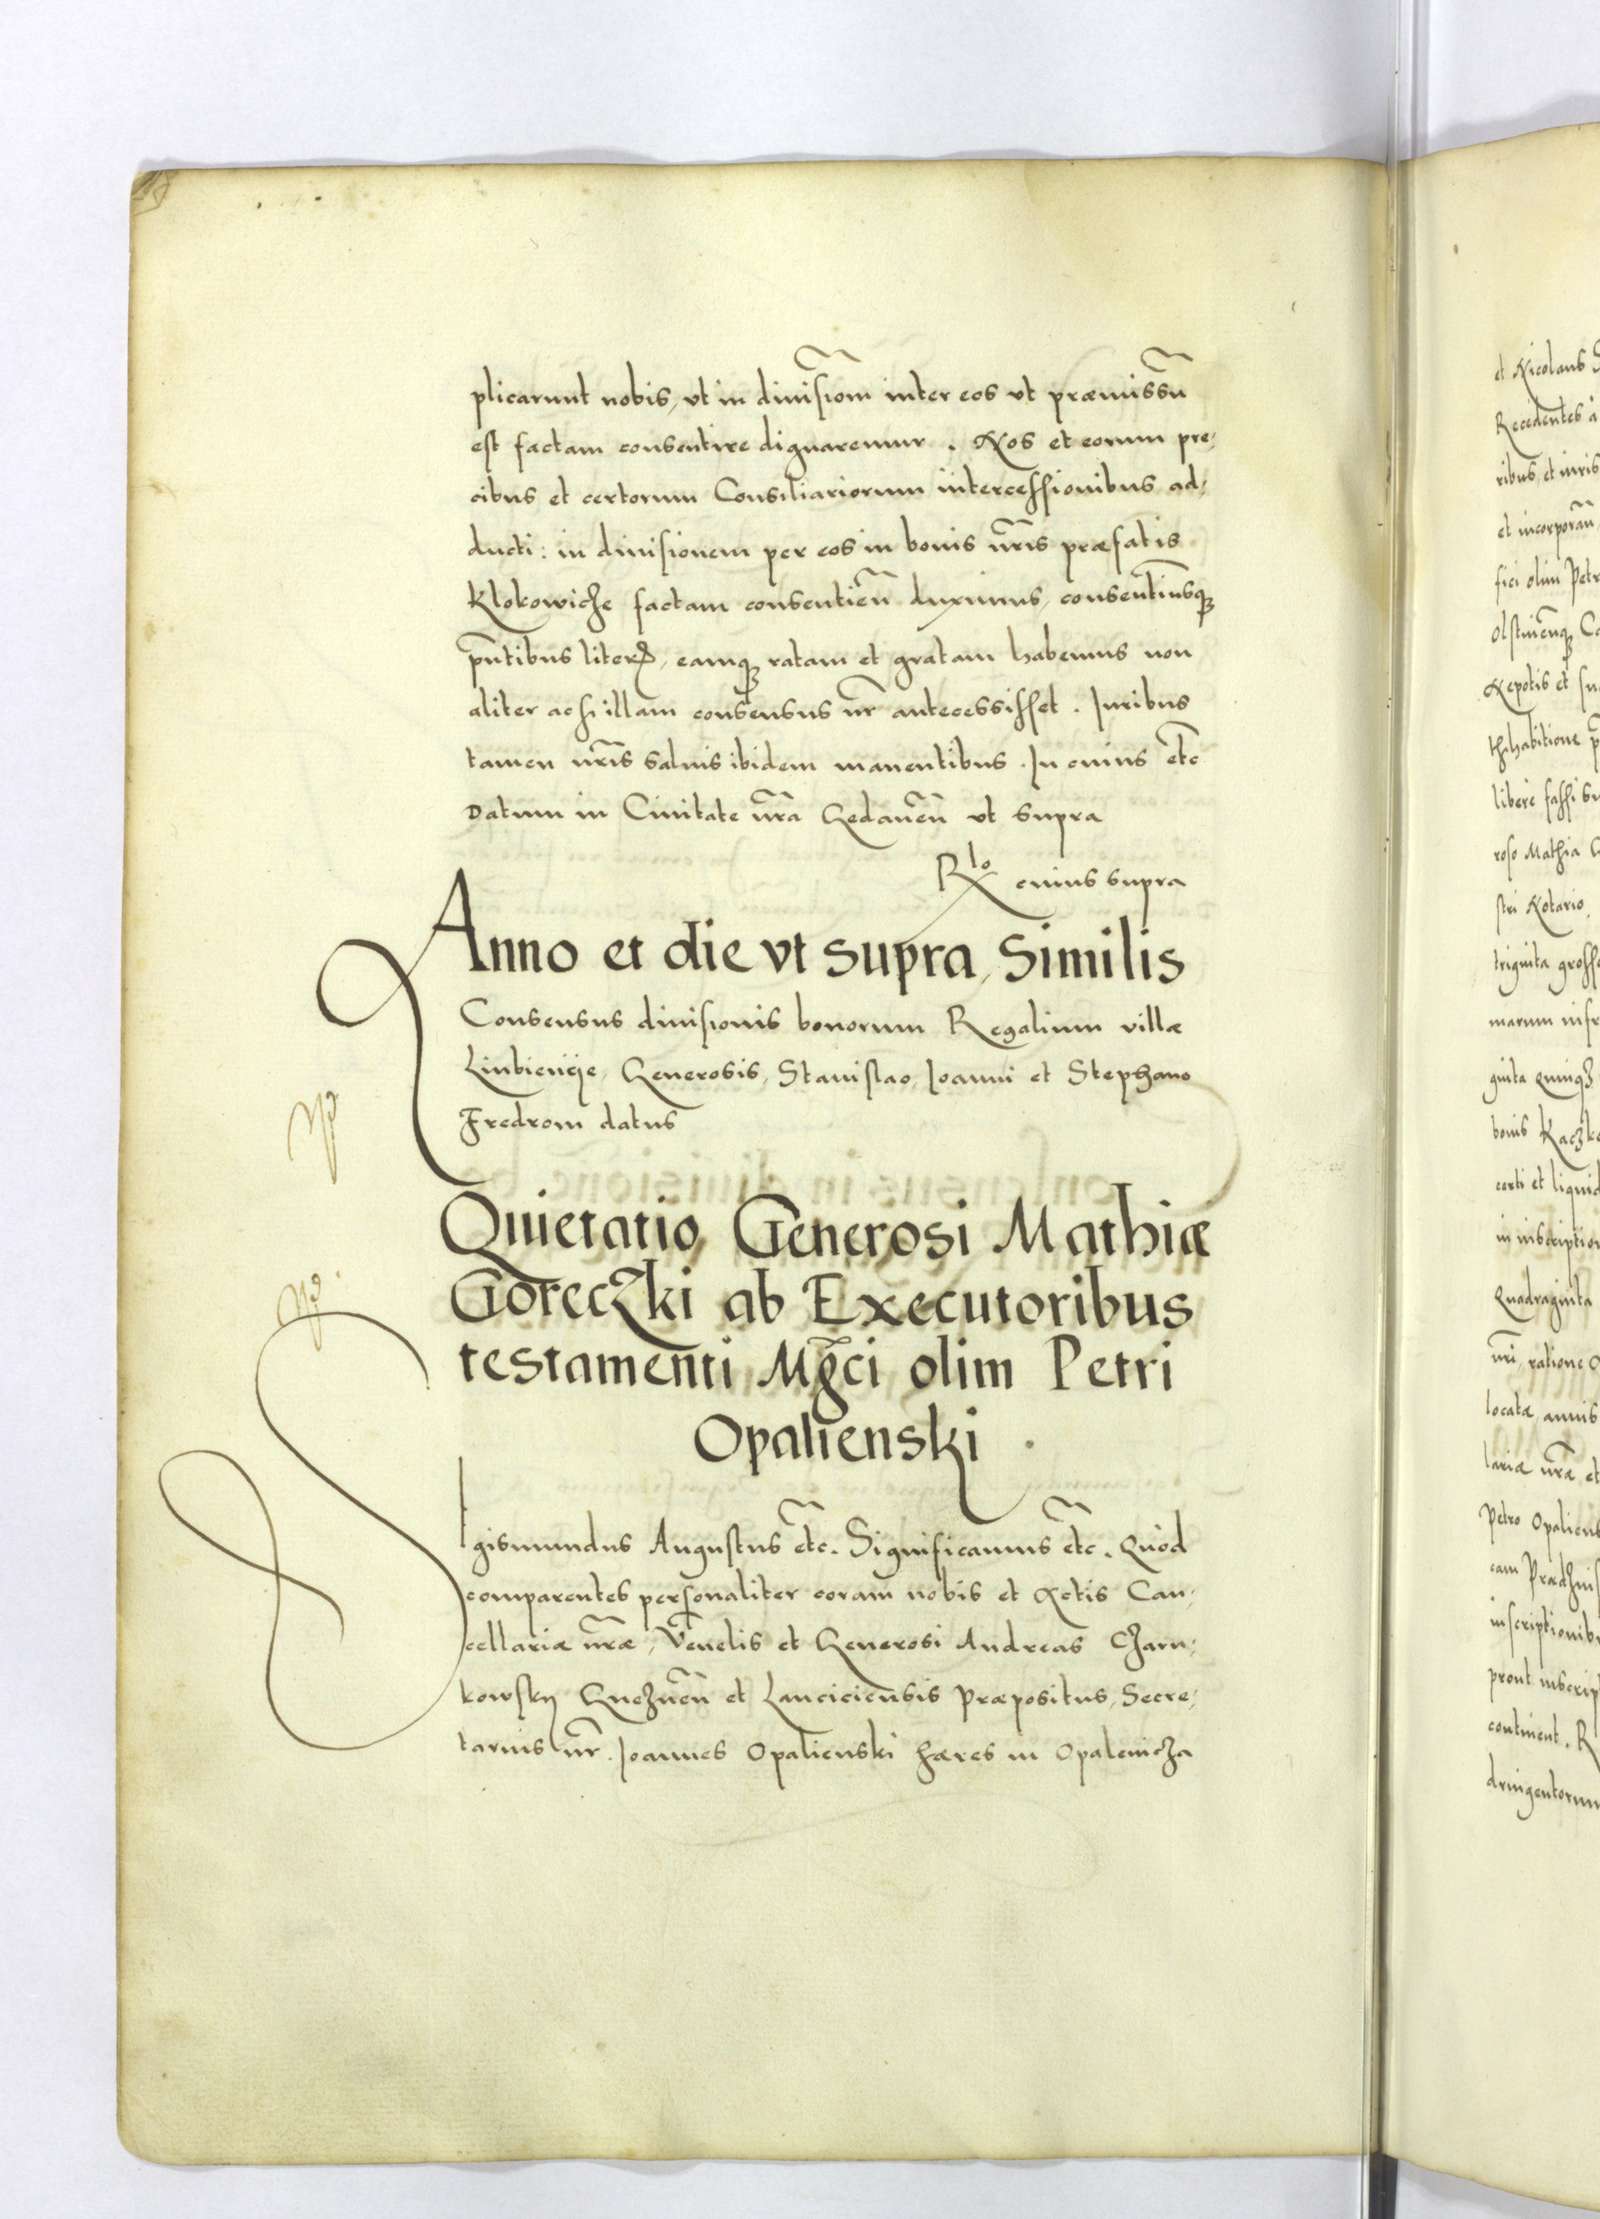 plicarunt nobis, ut in divisiom̃ inter eos ut præmissũ
est factam consentire dignaremur. Nos et eorum pre,
cibus et certorum Consiliariorum intercessionibus ad,
ducti: in divisionem per eos in bonis nr̃is præfatis
Klokowicze factam consentieñ duximus, consentimusq̃
pñtibus literis, eamq̃ ratam et gratam habemus non
aliter ac si illam consensus nr̃ antecessisset. Iuribus
tamen nr̃is salvis ibidem manentibus. In cuius etc̃
Datum in Civitate nr̃a Gedaneñ ut supra
Rlo cuius supra
Anno et die vt supra, Similis
Consensus divisionis bonorum Regalium villæ
Generosis, Stanislao, Ioanni et Stephano
Fredrom datus
Quietatio Generosi Mathiæ
Goreczki ab Executoribus
testamenti Mg̃ci olim Petri
Opalienski.
Sigismundus Augustus etc̃. Significamus etc̃. Quod
comparentes personaliter coram nobis et Actis Can,
cellariæ nr̃æ, Veñelis et Generosi Andreas Czarn,
kowsky Gnezneñ et Lanciciensis Præpositus, Secre,
tarius nr̃. Ioannes Opalienski hæres in Opalenicza
et Nicolaus
Recedentes a
ribus et iuris
et incorporañ
fici olim Petr
Nepotis et su
libere fassi su
roso Mathia G
stri Notario
triginta gross
marum infr
bonis Kaczk
certi et liquid
in inscription
Quadraginta
nr̃i, ratione
locatæ, annis
lariæ nr̃æ et
Petro Opaliens
inscriptionib
prout inscrip
continent. R
dringentorum